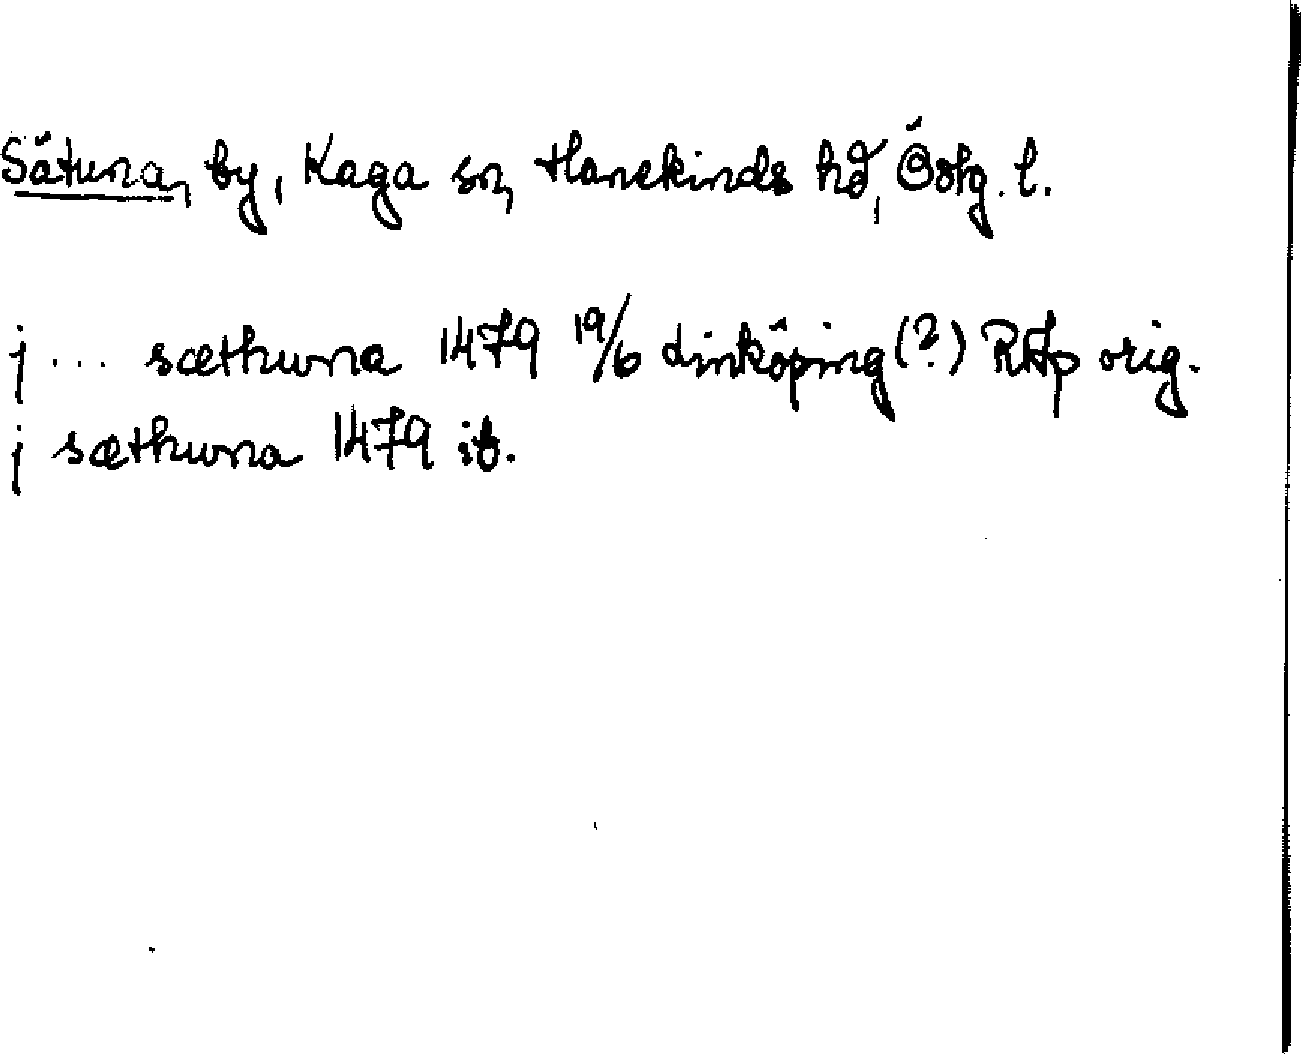 Sätuna, by, Kaga sn, Hanekinds hd, Östg. l.
j ... sæthuna 1479 19/6 Linköping (?) RAp orig.
j sæthuna 1479 ib.